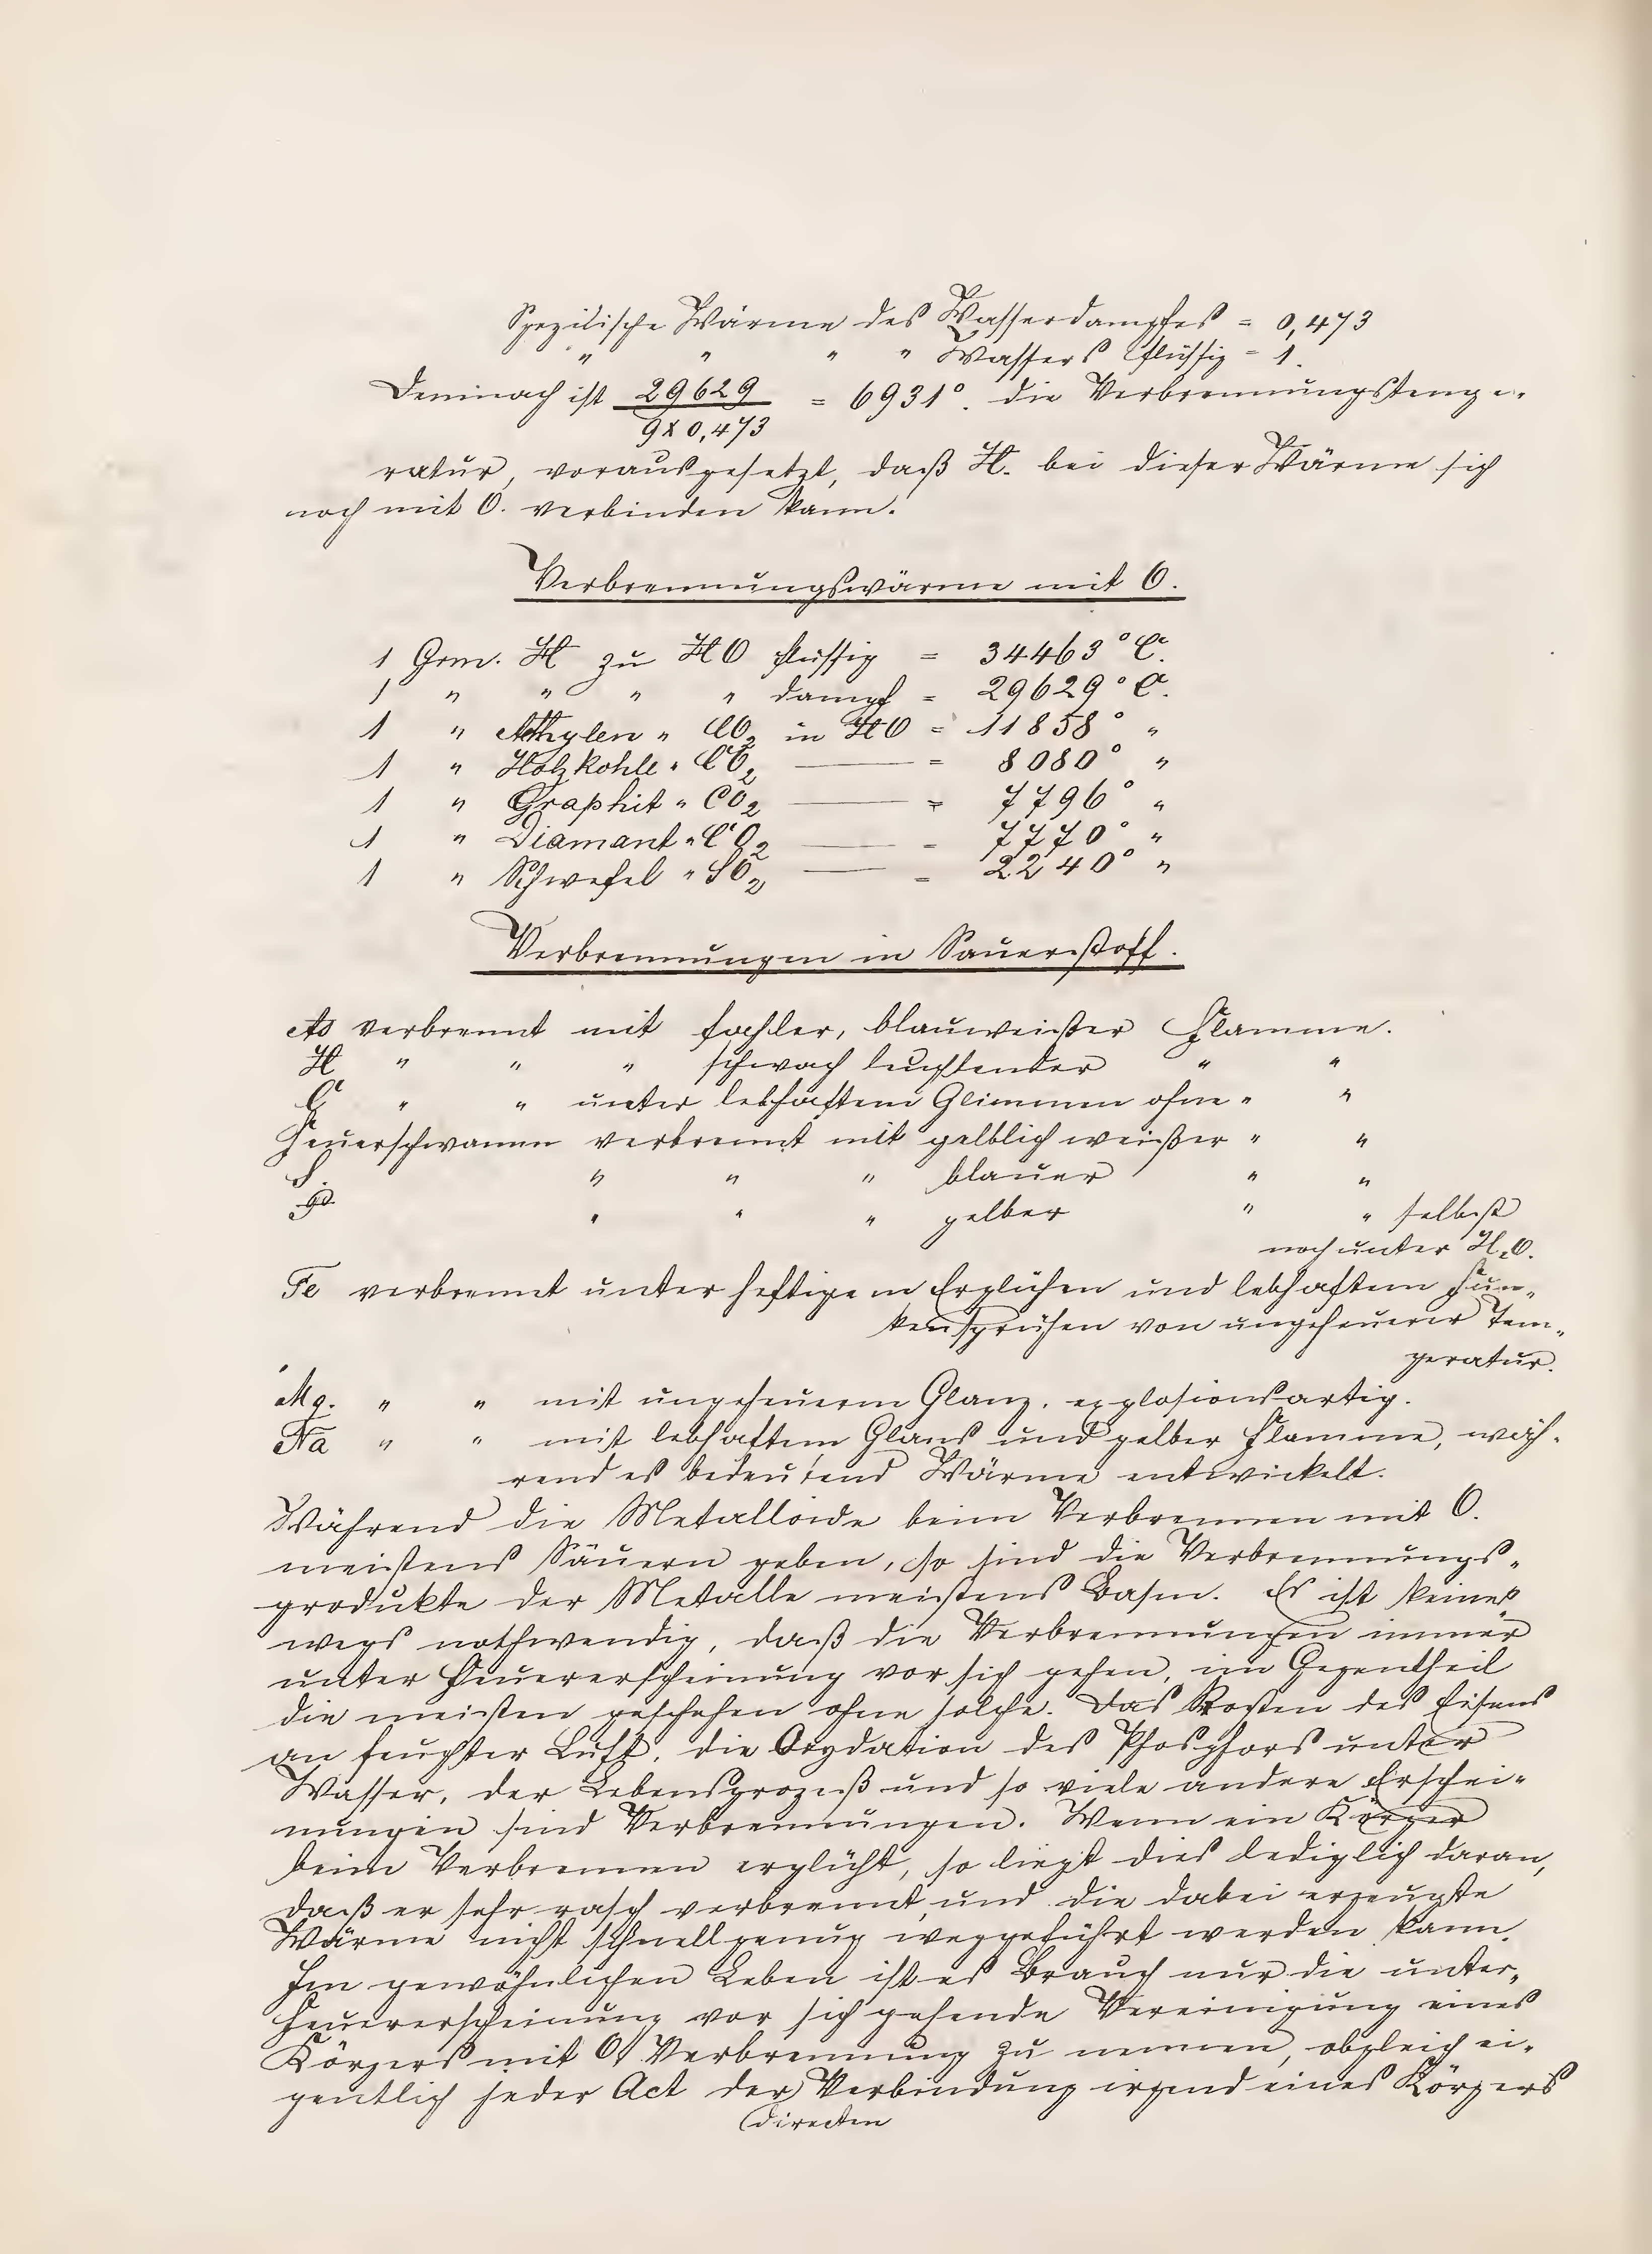 Spezifische Wärme des Wasserdampfes = 0,473
" " " " Wassers flüssig = 1.
Demnach ist 29629 / 9 x 0,473 = 6931°. die Verbrennungstempe-
ratur, vorausgesetzt, daß H. bei dieser Wärme sich
noch mit O. verbinden kann.
Verbrennungswärme mit O.
1 Grm. H zu HO flüssig = 34463° C.
1 " " " " dampf = 29629° C.
1 " Äthylen " CO2 in HO = 11858° "
1 " Holzkohle " CO2 — = 8080° "
1 " Graphit " CO2 — = 7796° "
1 " Diamant " CO2 — = 7770° "
1 " Schwefel " SO2 — = 2240° "
Verbrennungen in Sauerstoff.
As verbrennt mit fahler, blauweißer Flamme.
H " " " schwach leuchtender " "
C " " unter lebhaftem Glimmen ohne " "
Feuerschwamm verbrennt mit gelblich weißer " "
S. " " " blauer " "
P. " " " gelber " " selbst
noch unter H.O.
Fe verbrennt unter heftigem Erglühen und lebhaftem Fun-
kensprühen von ungeheuerer Tem-
peratur.
Mg. " " mit ungeheuerm Glanz, explosionsartig.
Na " " mit lebhaftem Glans und gelber Flamme, wäh-
rend es bedeutend Wärme entwickelt.
Während die Metalloide beim Verbrennen mit O.
meistens Säuern geben, so sind die Verbrennungs-
produkte der Metalle meistens Basen. Es ist keines
wegs nothwendig, daß die Verbrennungen immer
unter Feuererscheinung vor sich gehen, im Gegentheil
die meisten geschehen ohne solche. Das Rosten des Eisens
an feuchter Luft, die Oxydation des Phosphors unter
Wasser, der Lebensprozeß und so viele andere Erschei-
nungen sind Verbrennungen. Wenn ein Körper
beim Verbrennen erglüht, so liegt dies lediglich daran,
daß er sehr rasch verbrennt, und die dabei erzeugte
Wärme nicht schnell genug weggeführt werden kann.
Im gewöhnlichen Leben ist es Brauch nur die unter
Feuererscheinung vor sich gehende Vereinigung eines
Körpers mit O, Verbrennung zu nennen, obgleich ei-
gentlich jeder Act der Verbindung irgend eines Körpers
directen